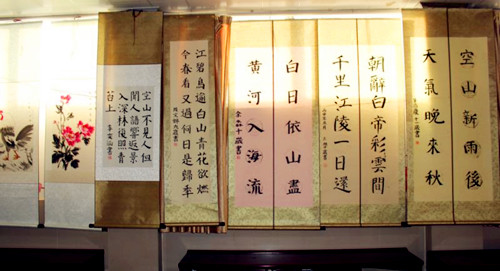 空山新雨後
天氣晚來秋
朝辭白帝彩雲間
千里江陵一日還
白日依山盡
黄河入海流
江碧鳥逾白山青花欲燃
今春看又過何日是歸年
空山不見人但
聞人語響返景
入深林復照青
苔上